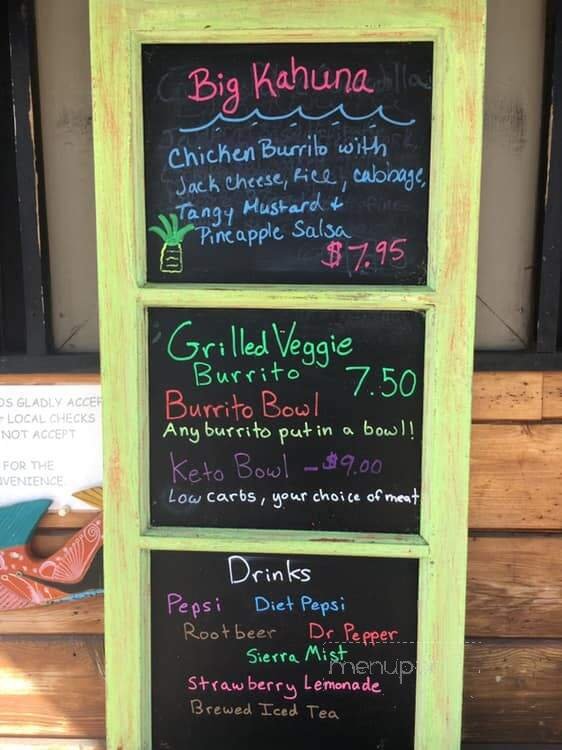 Big Kahuna
Chicken Burrito with
Jack Cheese, Rice, cabbage,
Tangy Mustard &
Pineapple Salsa
$7.95
Grilled Veggie
Burrito 7.50
Burrito Bowl
Any burrito put in a bowl!
Keto Bowl - $9.00
Low carbs, your choice of meat
Drinks
Pepsi Diet Pepsi
Root beer Dr. Pepper
Sierra Mist
Strawberry Lemonade
Brewed Iced Tea
GLADLY ACCEP
LOCAL CHECKS
NOT ACCEPT
FOR THE